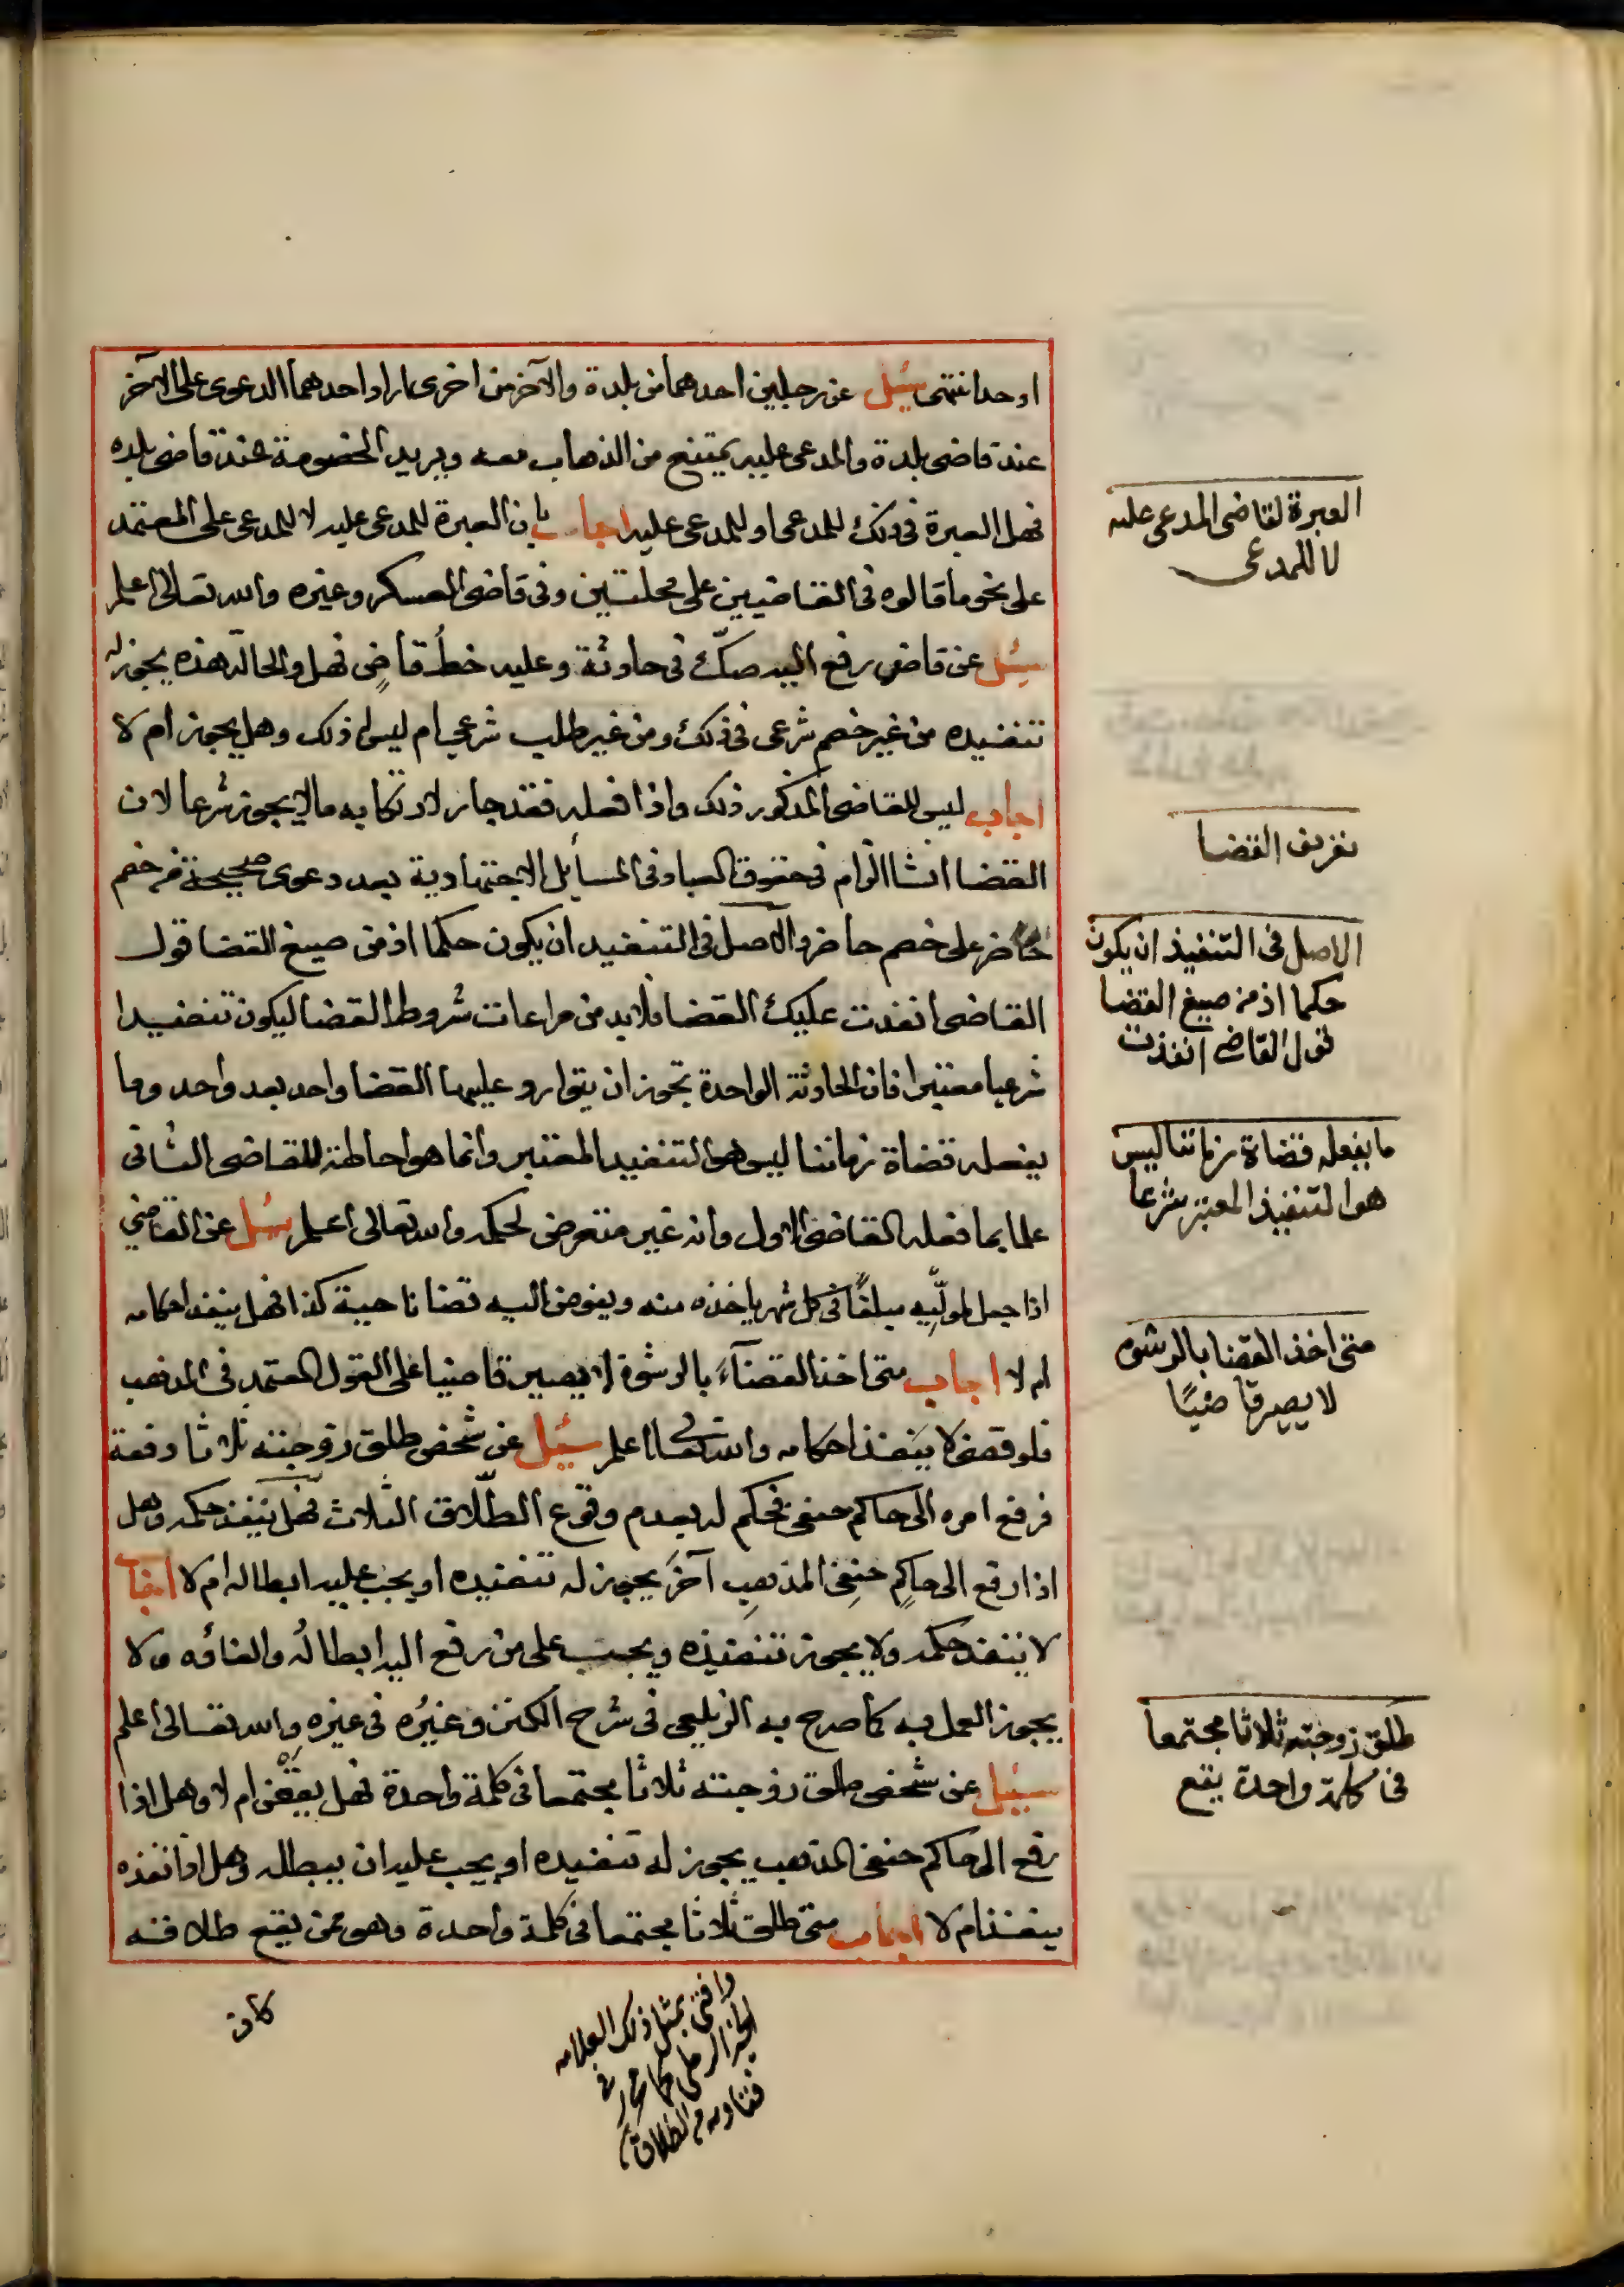 اوحدا نتهى سئل عن رجلين احدهما من بلدة والآخر من اخرى اراد احدهما الدعوى على الآخر
عند قاضى بلدة والمدعى عليه يمتنع من الذهاب معه ويريد الخصومة عند قاضى بلده
فهل العبرة فى ذلك للمدعى او للمدعى عليه اجاب بان العبرة للمدعى عليه لا للمدعى على المعتمد
على نحو ما قالوه فى القاضيين على محلتين وفى قاضى العسكر وغيره والله تعالى اعلم
سئل عن قاض رفع اليه صكّ فى حادثة وعليه خطُ قاضٍ فهل والحالة هذه يجوز له
تنفيذه من غير خصم شرعى فى ذلك ومن غير طلب شرعي ام ليس له ذلك وهل يجوز ام لا
اجاب ليس للقاضى المذكور ذلك واذا فعله فقد جار لارتكابه ما لا يجوز شرعا لان
القضا انشا الزام فى حقوق العباد فى المسائل الاجتهادية بعد دعوى صحيحة من خصم
حاضر على خصم حاضر والاصل فى التنفيذ ان يكون حكما اذ من صيغ القضا قول
القاضى انفذت عليك القضا فلابد من مراعات شروط القضا ليكون تنفيذا
شرعيا معتبرا فان الحادثة الواحدة تجوز ان يتوارد عليها القضا واحد بعد واحد وما
يفعله قضاة زماننا ليس هو التنفيذ المعتبر وانما هو احاطة للقاضى الثانى
علما بما فعله القاضى الاول وانه غير متعرض لحكمه والله تعالى اعلم سئل عن القاضي
اذا جعل لمولّيه مبلغًا فى كل شهر ياخذه منه ويفوض اليه قضا ناحية كذا فهل ينفذ احكامه
ام لا اجاب متى اخذ القضآء بالرشوة لا يصير قاضيا على القول المعتمد فى المذهب
فلو قضى لا ينفذ احكامه والله تعالى اعلم سئل عن شخص طلق زوجته ثلاثا دفعة
فرفع امره الى حاكم حنفى فحكم له بعدم وقوع الطّلاق الثلاث فهل ينفذ حكمه وهل
اذا رفع الى حاكمٍ حنفي المذهبِ آخرَ يجوز له تنفيذه او يجب عليه ابطاله ام لا اجاب
لا ينفذ حكمه ولا يجوز تنفيذه ويجب على من رفع اليه ابطالُه والغاؤه ولا
يجوز العمل به كما صرح به الزيلعى فى شرح الكنز وغيرُه فى غيرِه والله تعالى اعلم
سئل عن شخص طلق زوجته ثلاثا مجتمعا فى كلمة واحدة فهل يقعن ام لا وهل اذا
رفع الى حاكم حنفى المذهب يجوز له تنفيذه او يجب عليه ان يبطله وهل اذا نفذه
ينفذ ام لا اجاب متى طلق ثلاثا مجتمعا فى كلمة واحدة وهو ممن يقع طلاقه
كان
العبرة لقاضى المدعى عليه
لا للمدعى
تعريف القضا
الاصل فى التنفيذ ان يكون
حكما اذ من صيغ القضا
قول القاضى انفذت
ما يفعله قضاة زماننا ليس
هو التنفيذ المعتبر شرعا
متى اخذ القضا بالرشوه
لا يصير قاضيًا
طلق زوجته ثلاثا مجتمعا
فى كلمة واحدة يقع
وافتى بمثل ذلك العلامه
الخير الرملى كما فى
فتاويه من الطلاق